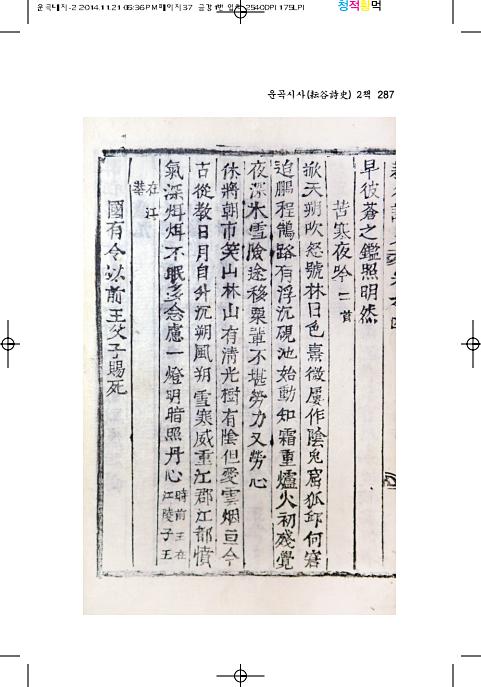 운곡시사(耘谷詩史) 2책 287
早彼蒼之鑑照明然
苦寒夜吟 二首
掀天朔吹怒號林日色熹微屢作陰兎窟狐丘何窘
迫鵬程鶴路有浮沉硯池始動知霜重爐火初殘覺
夜深氷雪險途移粟輩不堪勞力又勞心
休將朝市笑山林山有清光樹有陰但愛雲烟亘今
古從教日月自升沉朔風朔雪寒威重江郡江都憤
氣深炯炯不眠多念慮一燈明暗照丹心 時前王在江陵子王
在江華
國有令以前王父子賜死